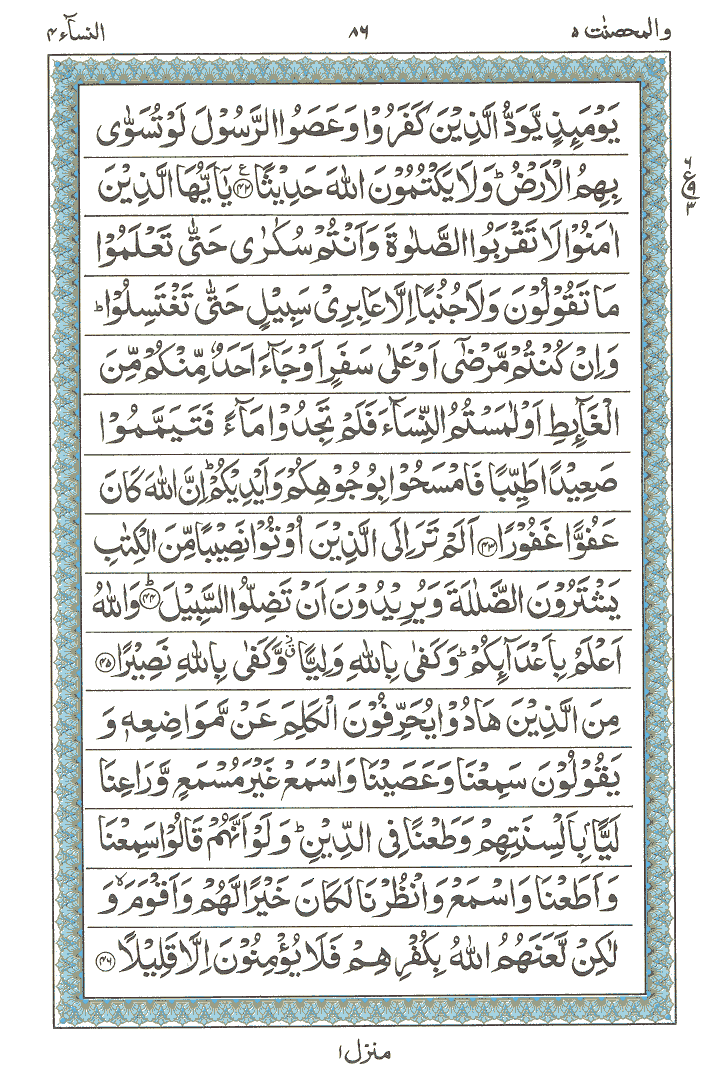 والمحصنٰت ٥ ٨٦ النسآء ٤
يَوْمَىِٕذٍ يَّوَدُّ الَّذِيْنَ كَفَرُوْا وَعَصَوُا الرَّسُوْلَ لَوْ تُسَوّٰى
بِهِمُ الْاَرْضُ ؕ وَلَا يَكْتُمُوْنَ اللّٰهَ حَدِيْثًا ﴿٤٢﴾ ع يٰۤاَيُّهَا الَّذِيْنَ
٦
ع ٩
٣
اٰمَنُوْا لَا تَقْرَبُوا الصَّلٰوةَ وَاَنْتُمْ سُكٰرٰى حَتّٰى تَعْلَمُوْا
مَا تَقُوْلُوْنَ وَلَا جُنُبًا اِلَّا عَابِرِيْ سَبِيْلٍ حَتّٰى تَغْتَسِلُوْا ؕ
وَاِنْ كُنْتُمْ مَّرْضٰۤى اَوْ عَلٰى سَفَرٍ اَوْ جَآءَ اَحَدٌ مِّنْكُمْ مِّنَ
الْغَآىِٕطِ اَوْ لٰمَسْتُمُ النِّسَآءَ فَلَمْ تَجِدُوْا مَآءً فَتَيَمَّمُوْا
صَعِيْدًا طَيِّبًا فَامْسَحُوْا بِوُجُوْهِكُمْ وَاَيْدِيْكُمْ ؕ اِنَّ اللّٰهَ كَانَ
عَفُوًّا غَفُوْرًا ﴿٤٣﴾ اَلَمْ تَرَ اِلَى الَّذِيْنَ اُوْتُوْا نَصِيْبًا مِّنَ الْكِتٰبِ
يَشْتَرُوْنَ الضَّلٰلَةَ وَيُرِيْدُوْنَ اَنْ تَضِلُّوا السَّبِيْلَ ﴿٤٤﴾ؕ وَاللّٰهُ
اَعْلَمُ بِاَعْدَآىِٕكُمْ ؕ وَكَفٰى بِاللّٰهِ وَلِيًّا ۙ٘ وَّكَفٰى بِاللّٰهِ نَصِيْرًا ﴿٤٥﴾
مِنَ الَّذِيْنَ هَادُوْا يُحَرِّفُوْنَ الْكَلِمَ عَنْ مَّوَاضِعِهٖ وَ
يَقُوْلُوْنَ سَمِعْنَا وَعَصَيْنَا وَاسْمَعْ غَيْرَ مُسْمَعٍ وَّرَاعِنَا
لَيًّۢا بِاَلْسِنَتِهِمْ وَطَعْنًا فِى الدِّيْنِ ؕ وَلَوْ اَنَّهُمْ قَالُوْا سَمِعْنَا
وَاَطَعْنَا وَاسْمَعْ وَانْظُرْنَا لَكَانَ خَيْرًا لَّهُمْ وَاَقْوَمَ ۙ وَ
لٰكِنْ لَّعَنَهُمُ اللّٰهُ بِكُفْرِهِمْ فَلَا يُؤْمِنُوْنَ اِلَّا قَلِيْلًا ﴿٤٦﴾
منزل ١